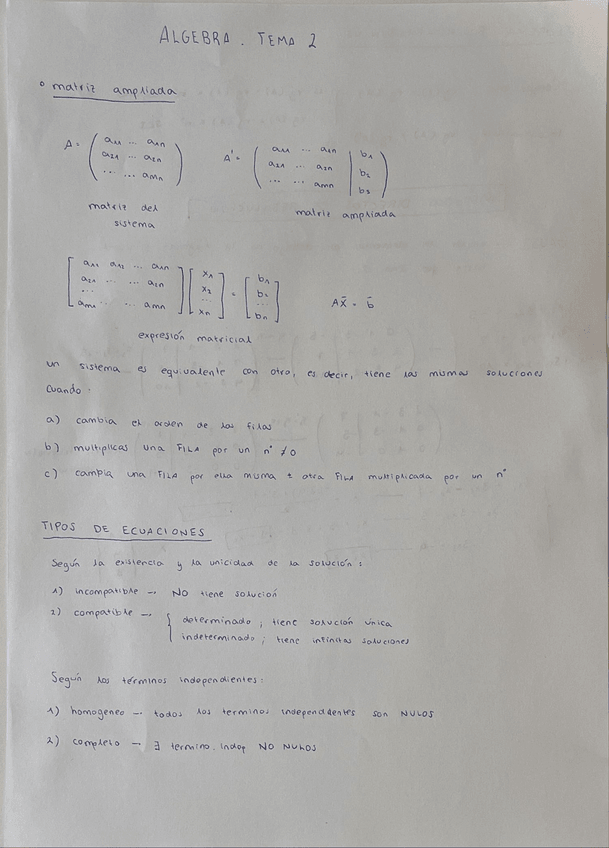 ALGEBRA. TEMA 2
° matriz ampliada
A = ( a11 ... a1n A' = ( a11 ... a1n | b1
a21 ... a2n a21 ... a2n | b2
... ... amn ) ... ... amn | b3 )
matriz del matriz ampliada
sistema
[ a11 a12 ... a1n ] [ x1 ] = [ b1 ]
a21 ... ... a2n x2 b2 Ax̄ = b̄
... ... ...
am1 ... ... amn xn bn
expresión matricial
un sistema es equivalente con otro, es decir, tiene las mismas soluciones
cuando:
a) cambia el orden de las filas
b) multiplicas una FILA por un n° ≠0
c) cambia una FILA por ella misma ± otra FILA multiplicada por un n°
TIPOS DE ECUACIONES
Según la existencia y la unicidad de la solución:
1) incompatible → NO tiene solución
2) compatible → { determinado, tiene solución única
indeterminado, tiene infinitas soluciones
Según los términos independientes:
1) homogeneo → todos los terminos independientes son NULOS
2) completo → ∃ termino. indep NO NULOS